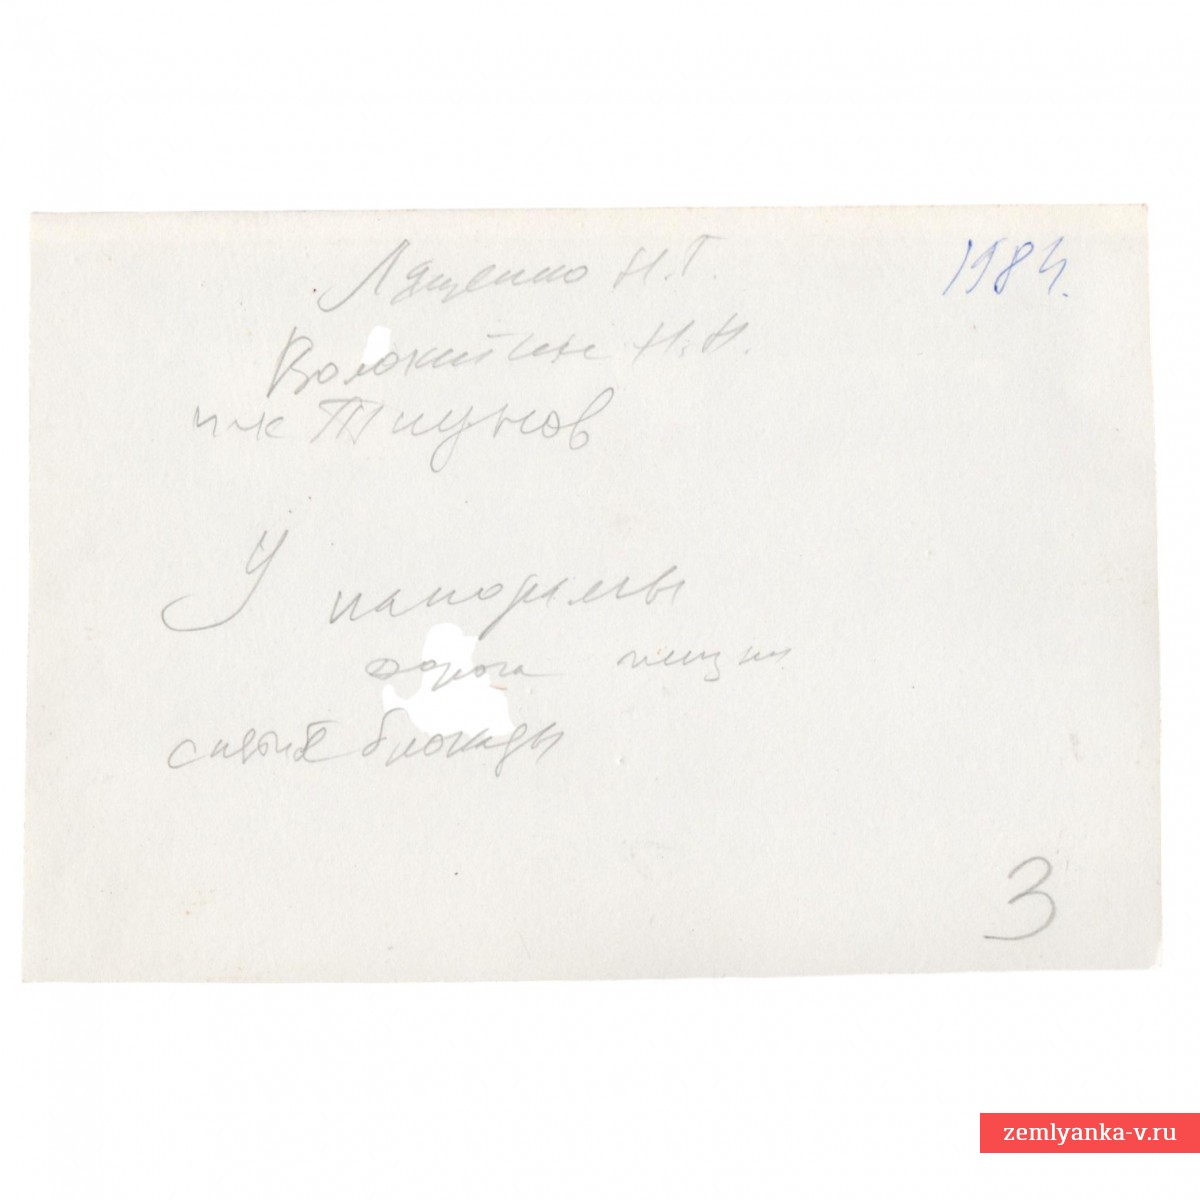 Лященко Н.Г.
1984.
Волокитин Н.Н.
п-к Тиунов
У панорамы
дорога жизни
снятия блокады
3
zemlyanka-v.ru